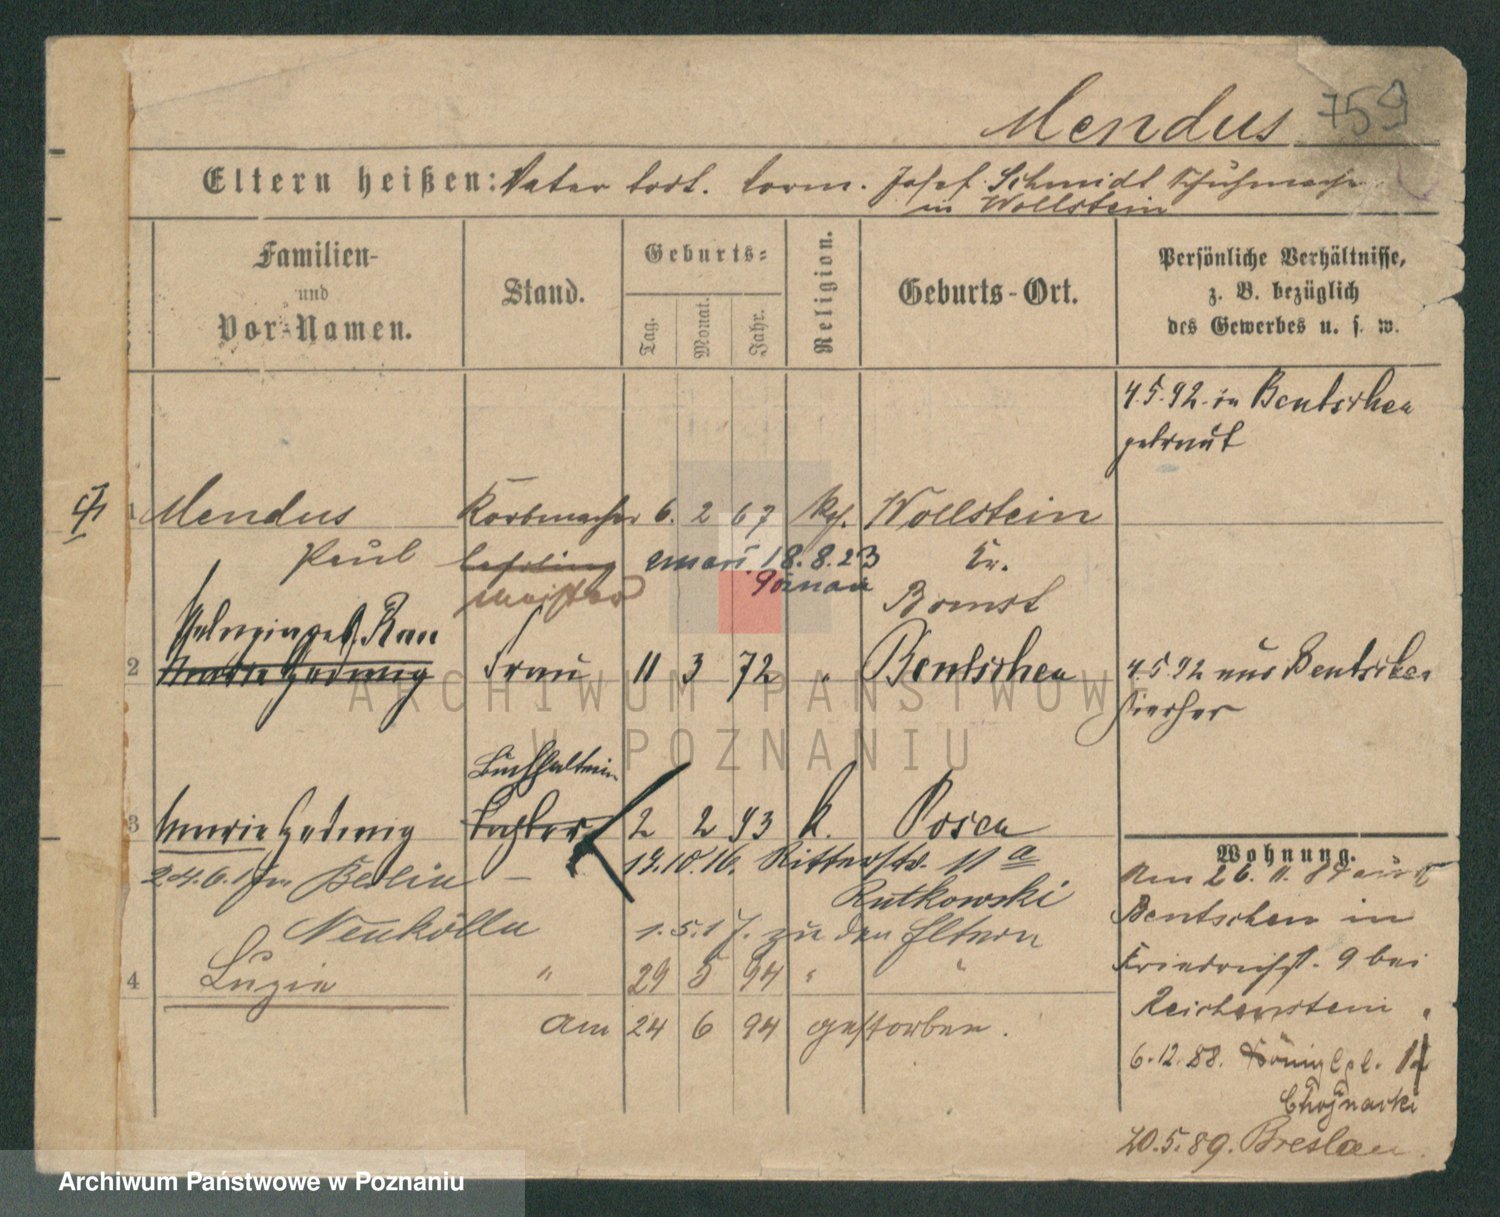 Mendus 759
Eltern heißen: Vater tot. Josef Schmidt Schuhmacher
in Wollstein
Familien-
und
Vor-Namen.
Stand.
Geburts-
Tag.
Monat.
Jahr.
Religion.
Geburts-Ort.
Persönliche Verhältnisse,
z. B. bezüglich
des Gewerbes u. s. w.
4.5.92. in Bentschen
getraut
1 Mendus Korbmacher 6. 2 67 Wollstein
Paul Lehrling 18.8.23 Kr.
meister Poznań Bomst
geb. Rau
2 Marie Hedwig Frau 11 3 72 " Bentschen 4.5.92 aus Bentschen
hierher
Buchhalterin
3 Marie Hedwig Tochter 2 2 93 k. Posen
Wohnung.
24.6.1 Berlin 19.10.16. Ritterstr. 11a
Rutkowski
Neukölln 1.5.17. zu den Eltern
4 Luzie " 29 5 94 " "
am 24 6 94 gestorben.
Am 26.11.87 aus
Bentschen in
Friedrichst. 9 bei
Reichenstein
6.12.88. Königspl.
Chojnacki
20.5.89. Breslau.
ARCHIWUM PAŃSTWOW
W POZNANIU
Archiwum Państwowe w Poznaniu